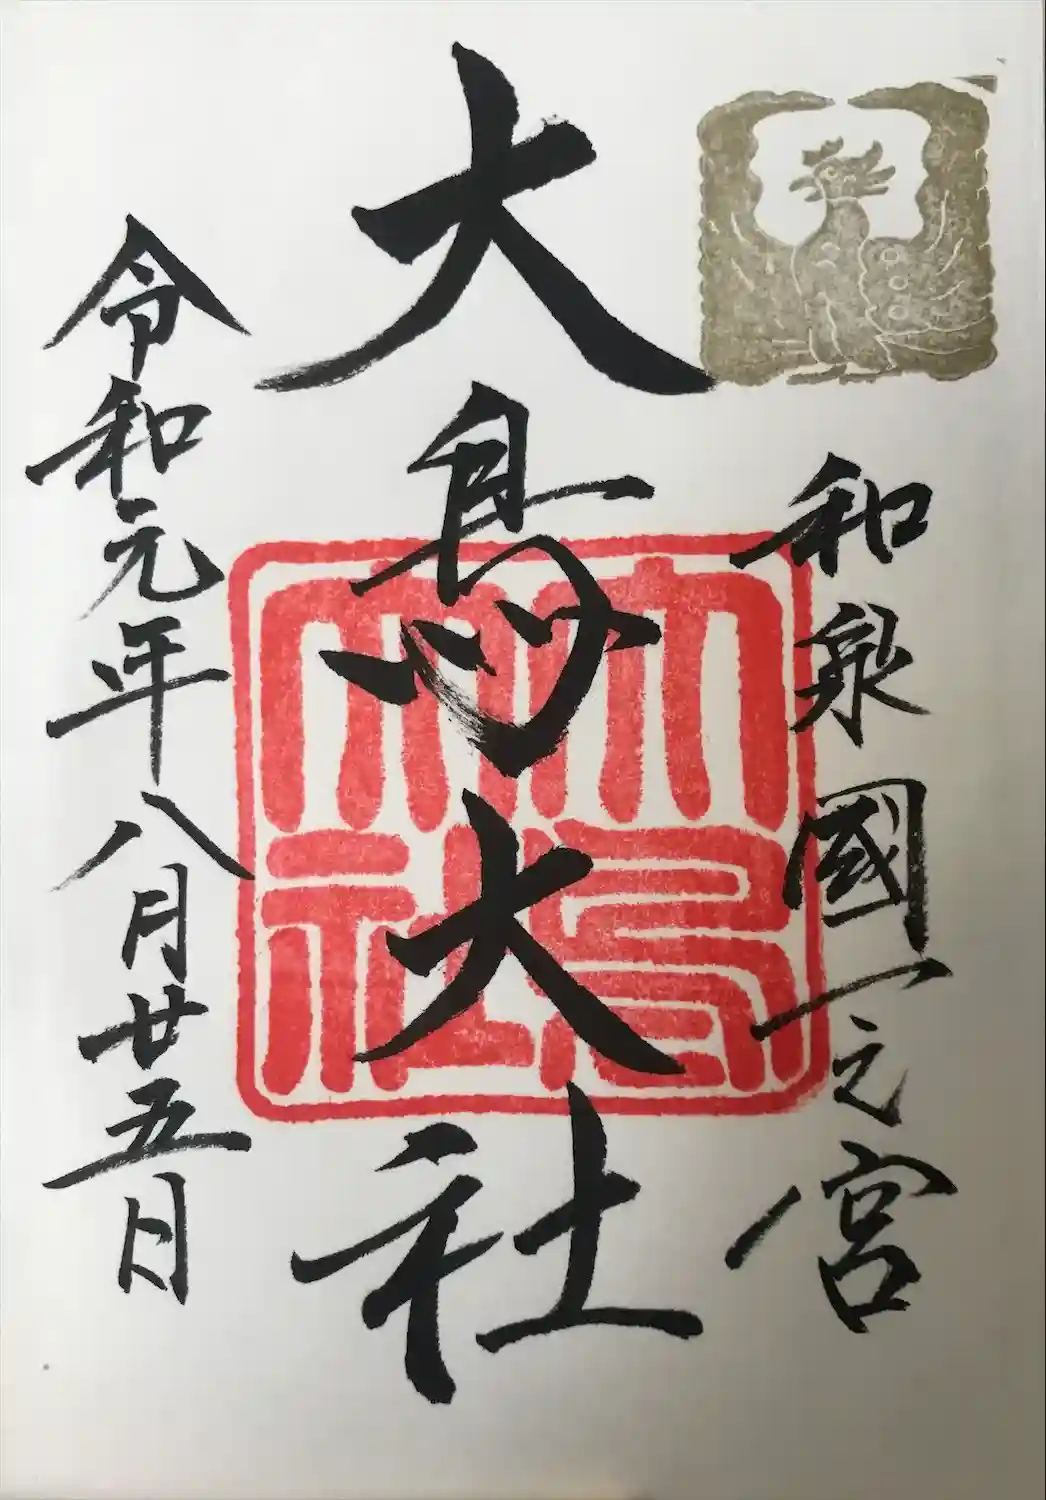 和泉國一之宮
大鳥大社
大鳥
大社
令和元年八月廿五日